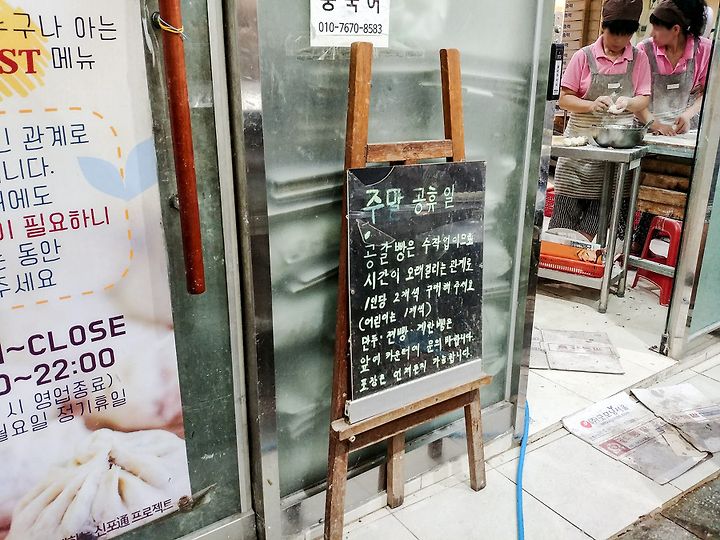 누구나 아는
ST 메뉴
관계로
니다.
에도
이 필요하니
동안
주세요
~CLOSE
0~22:00
시 영업종료)
요일 정기휴일
신포通 프로젝트
중국어
010-7670-8583
주말 공휴일
공갈빵은 수작업이므로
시간이 오래걸리는 관계로
1인당 2개씩 구매해 주세요
(어린이는 1개씩)
만두. 전빵. 계란빵은
앞에 카운터에 문의 바랍니다.
포장은 언제든지 가능합니다.